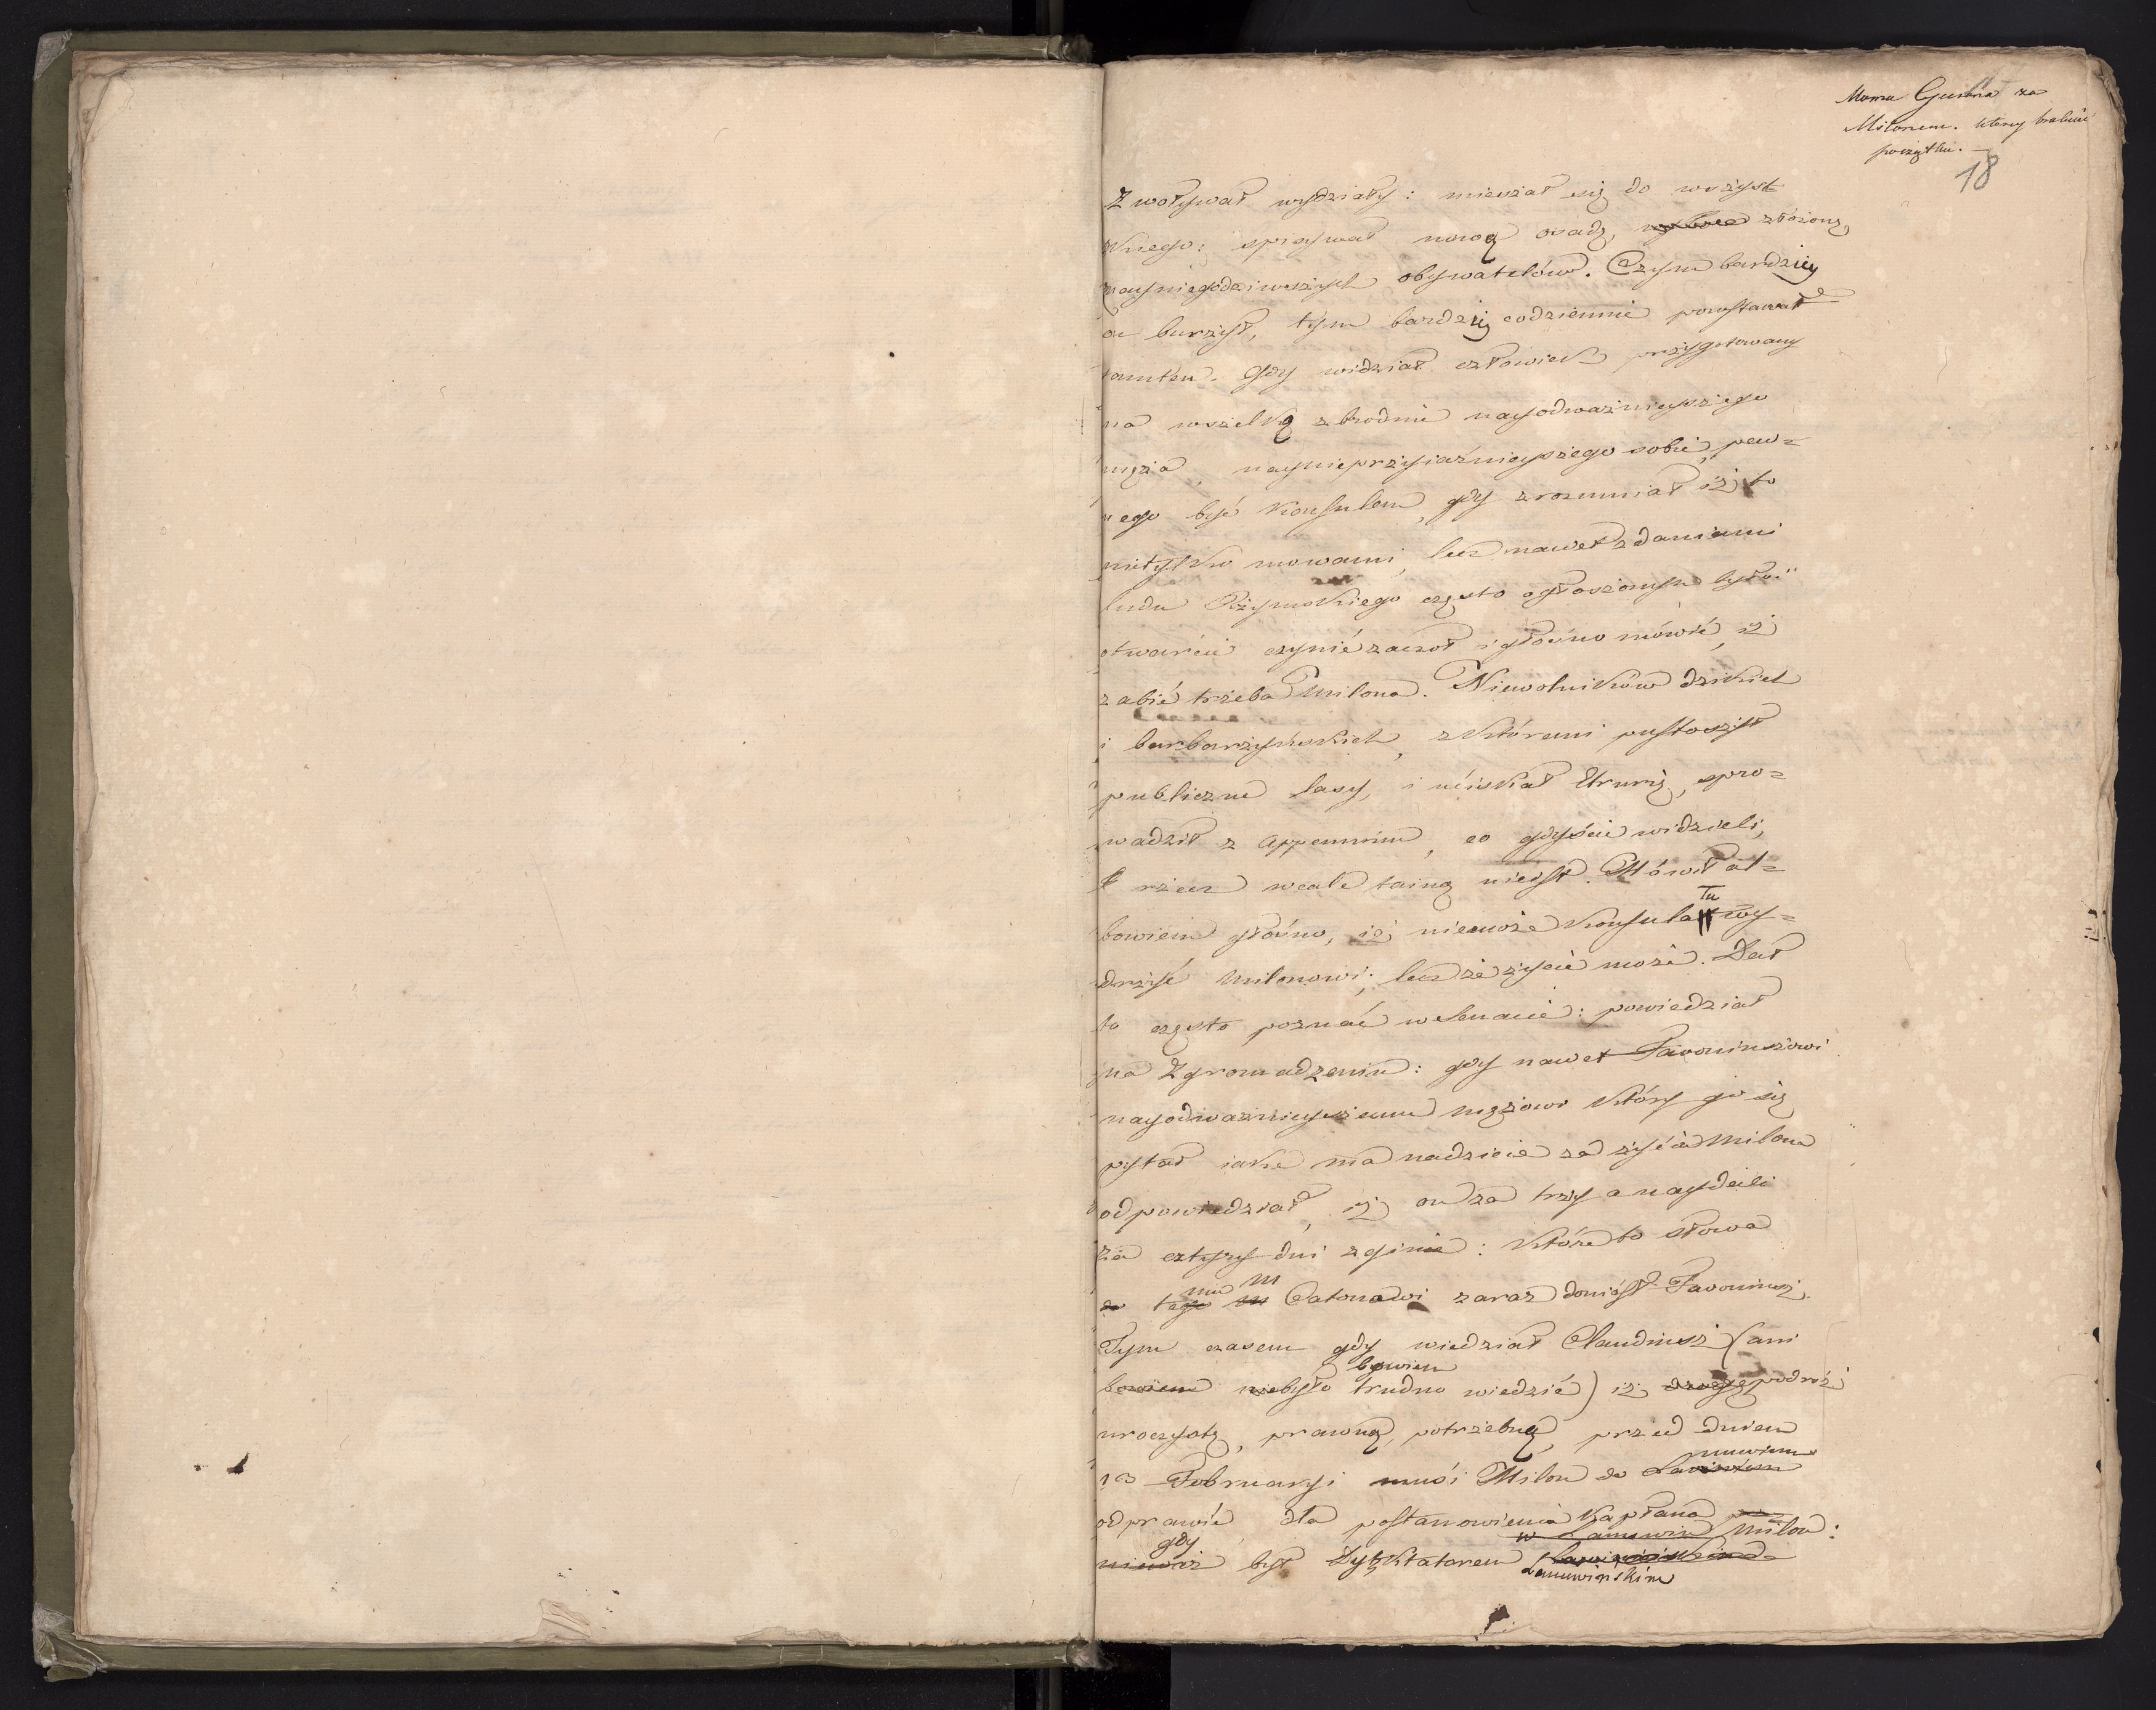 Mowa Cycerona za
Milonem. ktorey brakuie
początku.
18
Zwoływał wydziały: mieszał się do wszyst
kiego: spisywał nową osadę, złożoną
nayniegodziwszych obywatelów. Czym bardziey
on burzył, tym bardziey codziennie powstawał
tamten. Gdy widział człowiek przygotowany
na wszelką zbrodnie nayodważnieyszego
męża, naynieprzyiaźnieyszego sobie, pew=
nego być Konsulem, gdy zrozumiał iż to
nietylko mowami, lecz nawet zdaniami
ludu Rzymskiego często ogłoszonym było
otwarcie czynić zaczoł i głośno mówić, iż
zabić trzeba Milona. Niewolników dzikich
i barbarzyńskich, z któremi pustoszył
publiczne lasy, i uciskał Etrurią, spro=
wadził z Appeninu, co gdyście widzieli,
rzecz wcale tainą niest. Mówił al=
bowiem głośno, iż niemoże Konsulatu wy=
drzyć Milonowi; lecz że życie może. Dał
to często poznać w Senacie: powiedział
na Zgromadzeniu: gdy nawet Favoniuszowi
nayodważnieyszemu mężowi który go się
pytał iakie ma nadzieie za życia Milona
odpowiedział, iż on za trzy a naydali
za cztyry dni zginie: które to słowa
temu M Catonowi zaraz doniósł Favoniusz.
Tym czasem gdy wiedział Claudiusz (ani
bowiem
bowiem niebyło trudno wiedzić) iż podróż
uroczystą, prawną, potrzebną, przed dniem
nuwium
13 Februaryi musi Milon do Lavinium
odprawić dla postanowienia kapłana
gdy w Lanuwiu Milon:
był Dyktatorem
Lanuwińskim